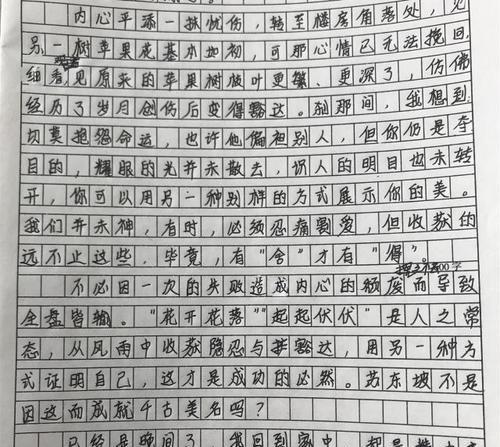 内心平添一抹忧伤,转至楼房角落处,见
另一树苹果花基本地初,可那心情已无法挽回,
细看见原来的苹果树枝叶更繁、更深了,仿佛
经历了岁月创伤后变得豁达。刹那间,我想到:
切莫抱怨命运,也许他偏袒别人,但你仍是夺
目的,耀眼的光并未散去,惊人的明目也未转
开,你可以用另一种别样的方式展示你的美。
我们并未神,有时,必须忍痛割爱,但收获的
远不止这些,毕竟,有“舍”才有“得”。
不必因一次的失败造成内心的颓废而导致
全盘皆输。“花开花落”“起起伏伏”是人之常
态,从风雨中收获隐忍与豁达,用另一种方
式证明自己,这才是成功的必然。苏东坡不是
因这而成就千古美名吗?
已经是晚间了,我回到家中,